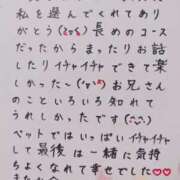 私を選んでくれてあり
がとう(ˊᵕˋ)長めのコース
だったからまったりお話
したりイチャイチャできて楽
しかったー(ˊᵕˋ)お兄さん
のこといろいろ知れて
うれしかったです(ˊᵕˋ)
ベットではいっぱいイチャイチャ
して最後は一緒に気持
ちよくなれて幸せでした♡♡